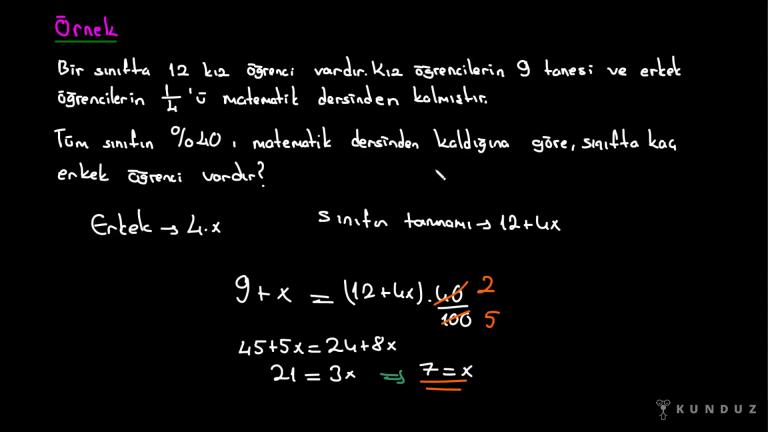 Örnek
Bir sınıfta 12 kız öğrenci vardır. Kız öğrencilerin 9 tanesi ve erkek
öğrencilerin 1/4 'ü matematik dersinden kalmıştır.
Tüm sınıfın %40 ı matematik dersinden kaldığına göre, sınıfta kaç
erkek öğrenci vardır?
Erkek → 4.x    Sınıfın tamamı → 12+4x
9+x = (12+4x).40/100 2/5
45+5x=24+8x
21 = 3x ⇒ 7=x
KUNDUZ